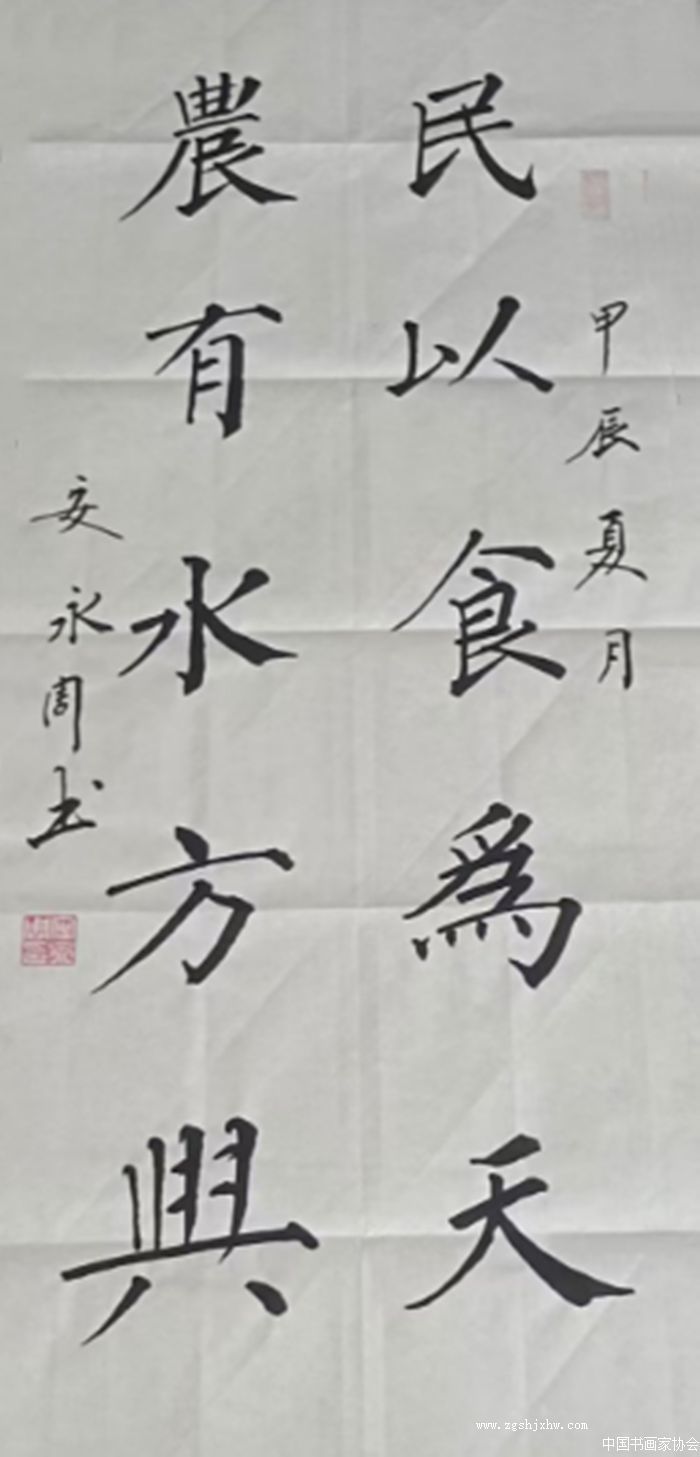 甲辰夏月
民以食為天
農有水方興
安永周书
www.zgshjxhw.com
中国书画家协会